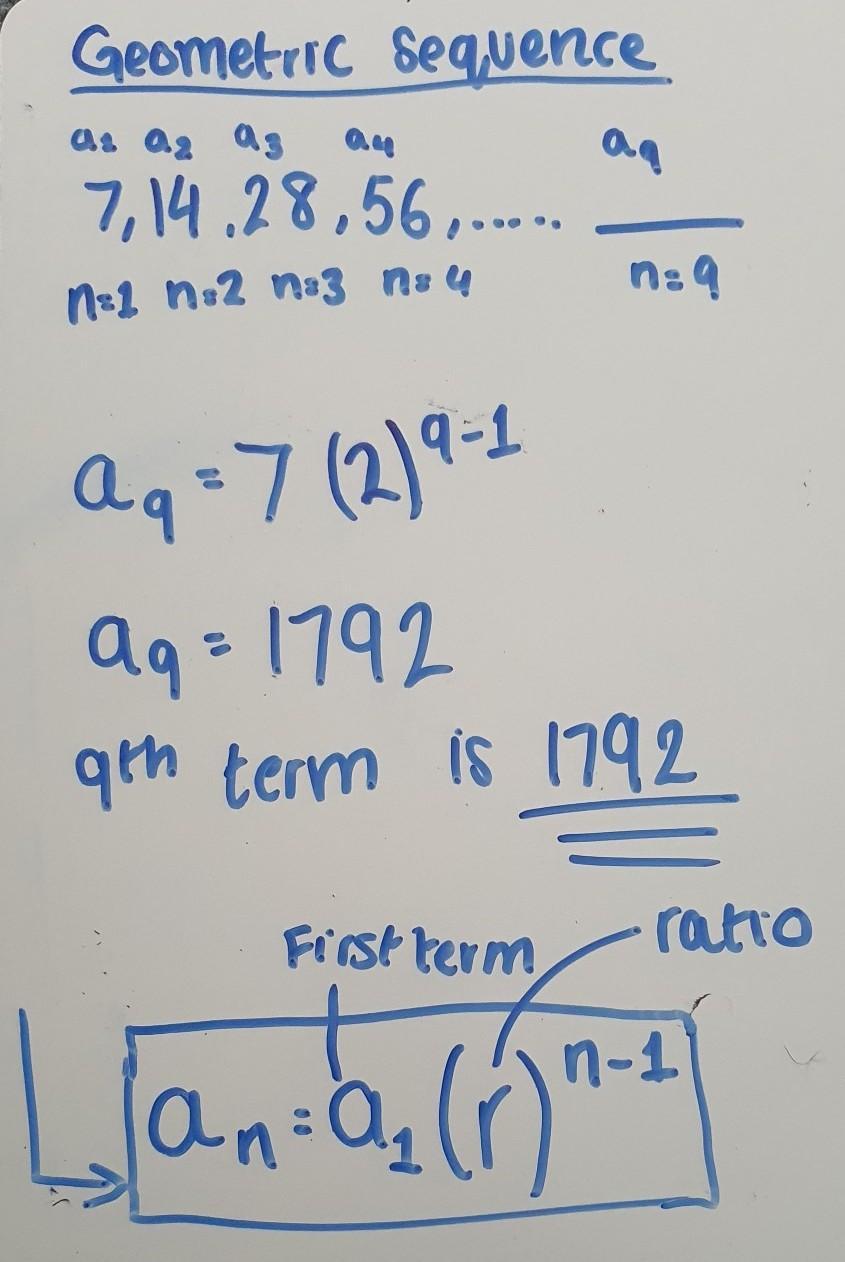 Geometric Sequence
a1 a2 a3 a4 a9
7, 14, 28, 56, ...... ___
n=1 n=2 n=3 n=4 n=9
a9 = 7 (2)^9-1
a9 = 1792
9th term is 1792
First term ratio
an = a1 (r)^n-1